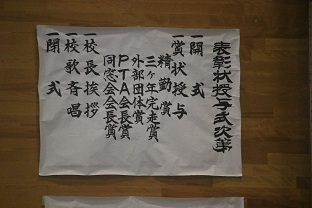 表彰状授与式次第
一開式
一賞状授与
精勤賞
三ヶ年完走賞
外部団体賞
PTA会長賞
同窓会会長賞
一校長挨拶
一校歌斉唱
一閉式